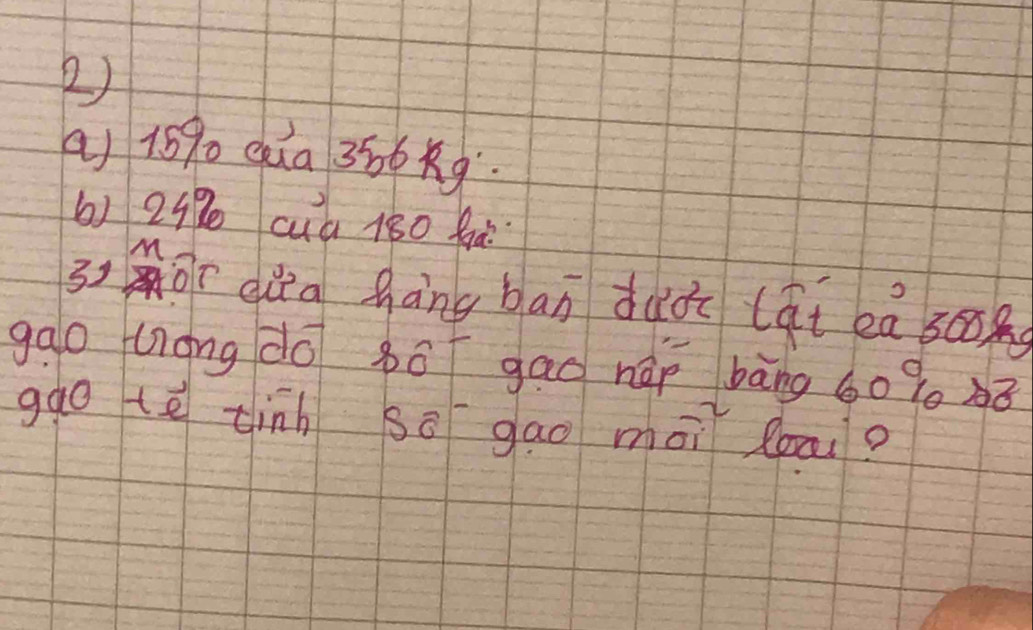 2)
a) 15% của 356 kg:
b) 24% của 180 ha:
3) Một cửa hàng bán được tất cả 300kg
gạo trong đó số gạo nếp bằng 60% số
gạo tẻ tính số gạo mỗi loại?